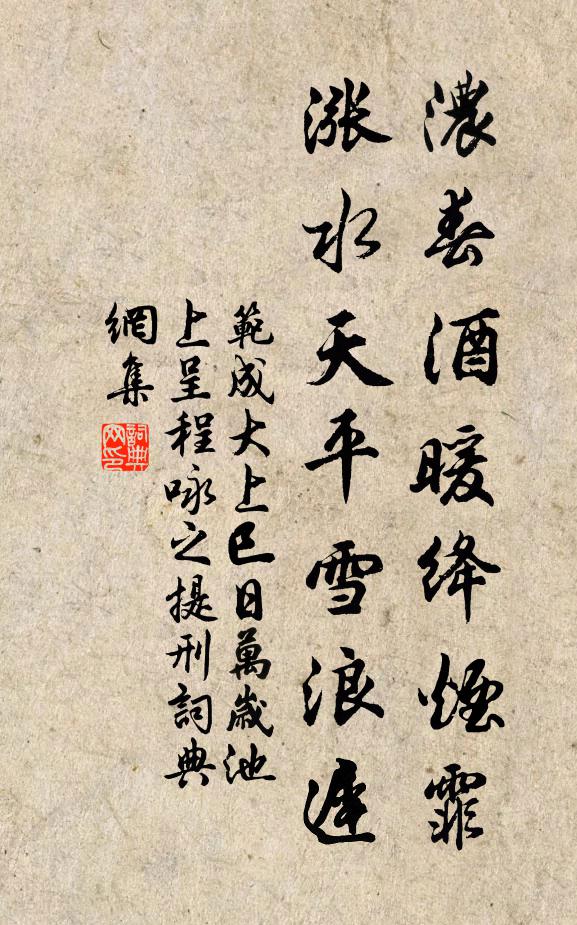 濃春酒暖絳煙霏
漲水天平雪浪遲
範成大上巳日萬歲池
上呈程咏之提刑詞典
網集
詞典網印